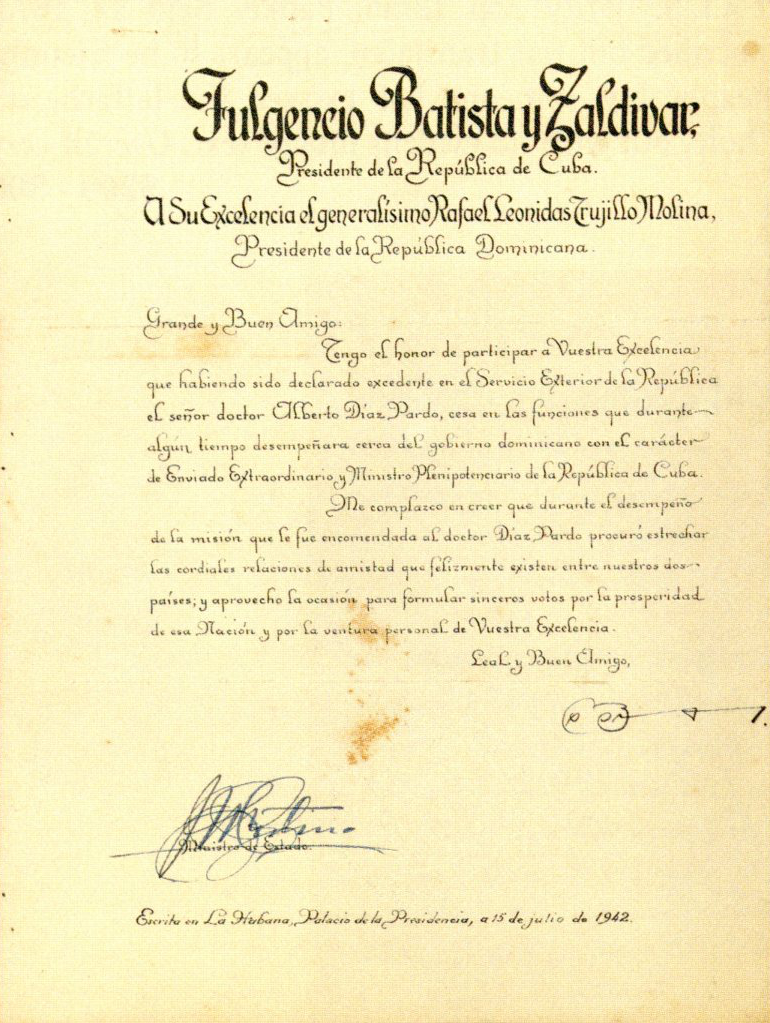 Fulgencio Batista y Zaldivar,
Presidente de la República de Cuba.
A Su Excelencia el generalísimo Rafael Leonidas Trujillo Molina,
Presidente de la República Dominicana.
Grande y Buen Amigo:
Tengo el honor de participar a Vuestra Excelencia
que habiendo sido declarado excedente en el Servicio Exterior de la República
el señor doctor Alberto Díaz Pardo, cesa en las funciones que durante
algún tiempo desempeñara cerca del gobierno dominicano con el carácter
de Enviado Extraordinario y Ministro Plenipotenciario de la República de Cuba.
Me complazco en creer que durante el desempeño
de la misión que le fue encomendada al doctor Díaz Pardo procuró estrechar
las cordiales relaciones de amistad que felizmente existen entre nuestros dos
países; y aprovecho la ocasión para formular sinceros votos por la prosperidad
de esa Nación y por la ventura personal de Vuestra Excelencia.
Leal y Buen Amigo,
Ministro de Estado.
Escrita en La Habana, Palacio de la Presidencia, a 15 de julio de 1942.